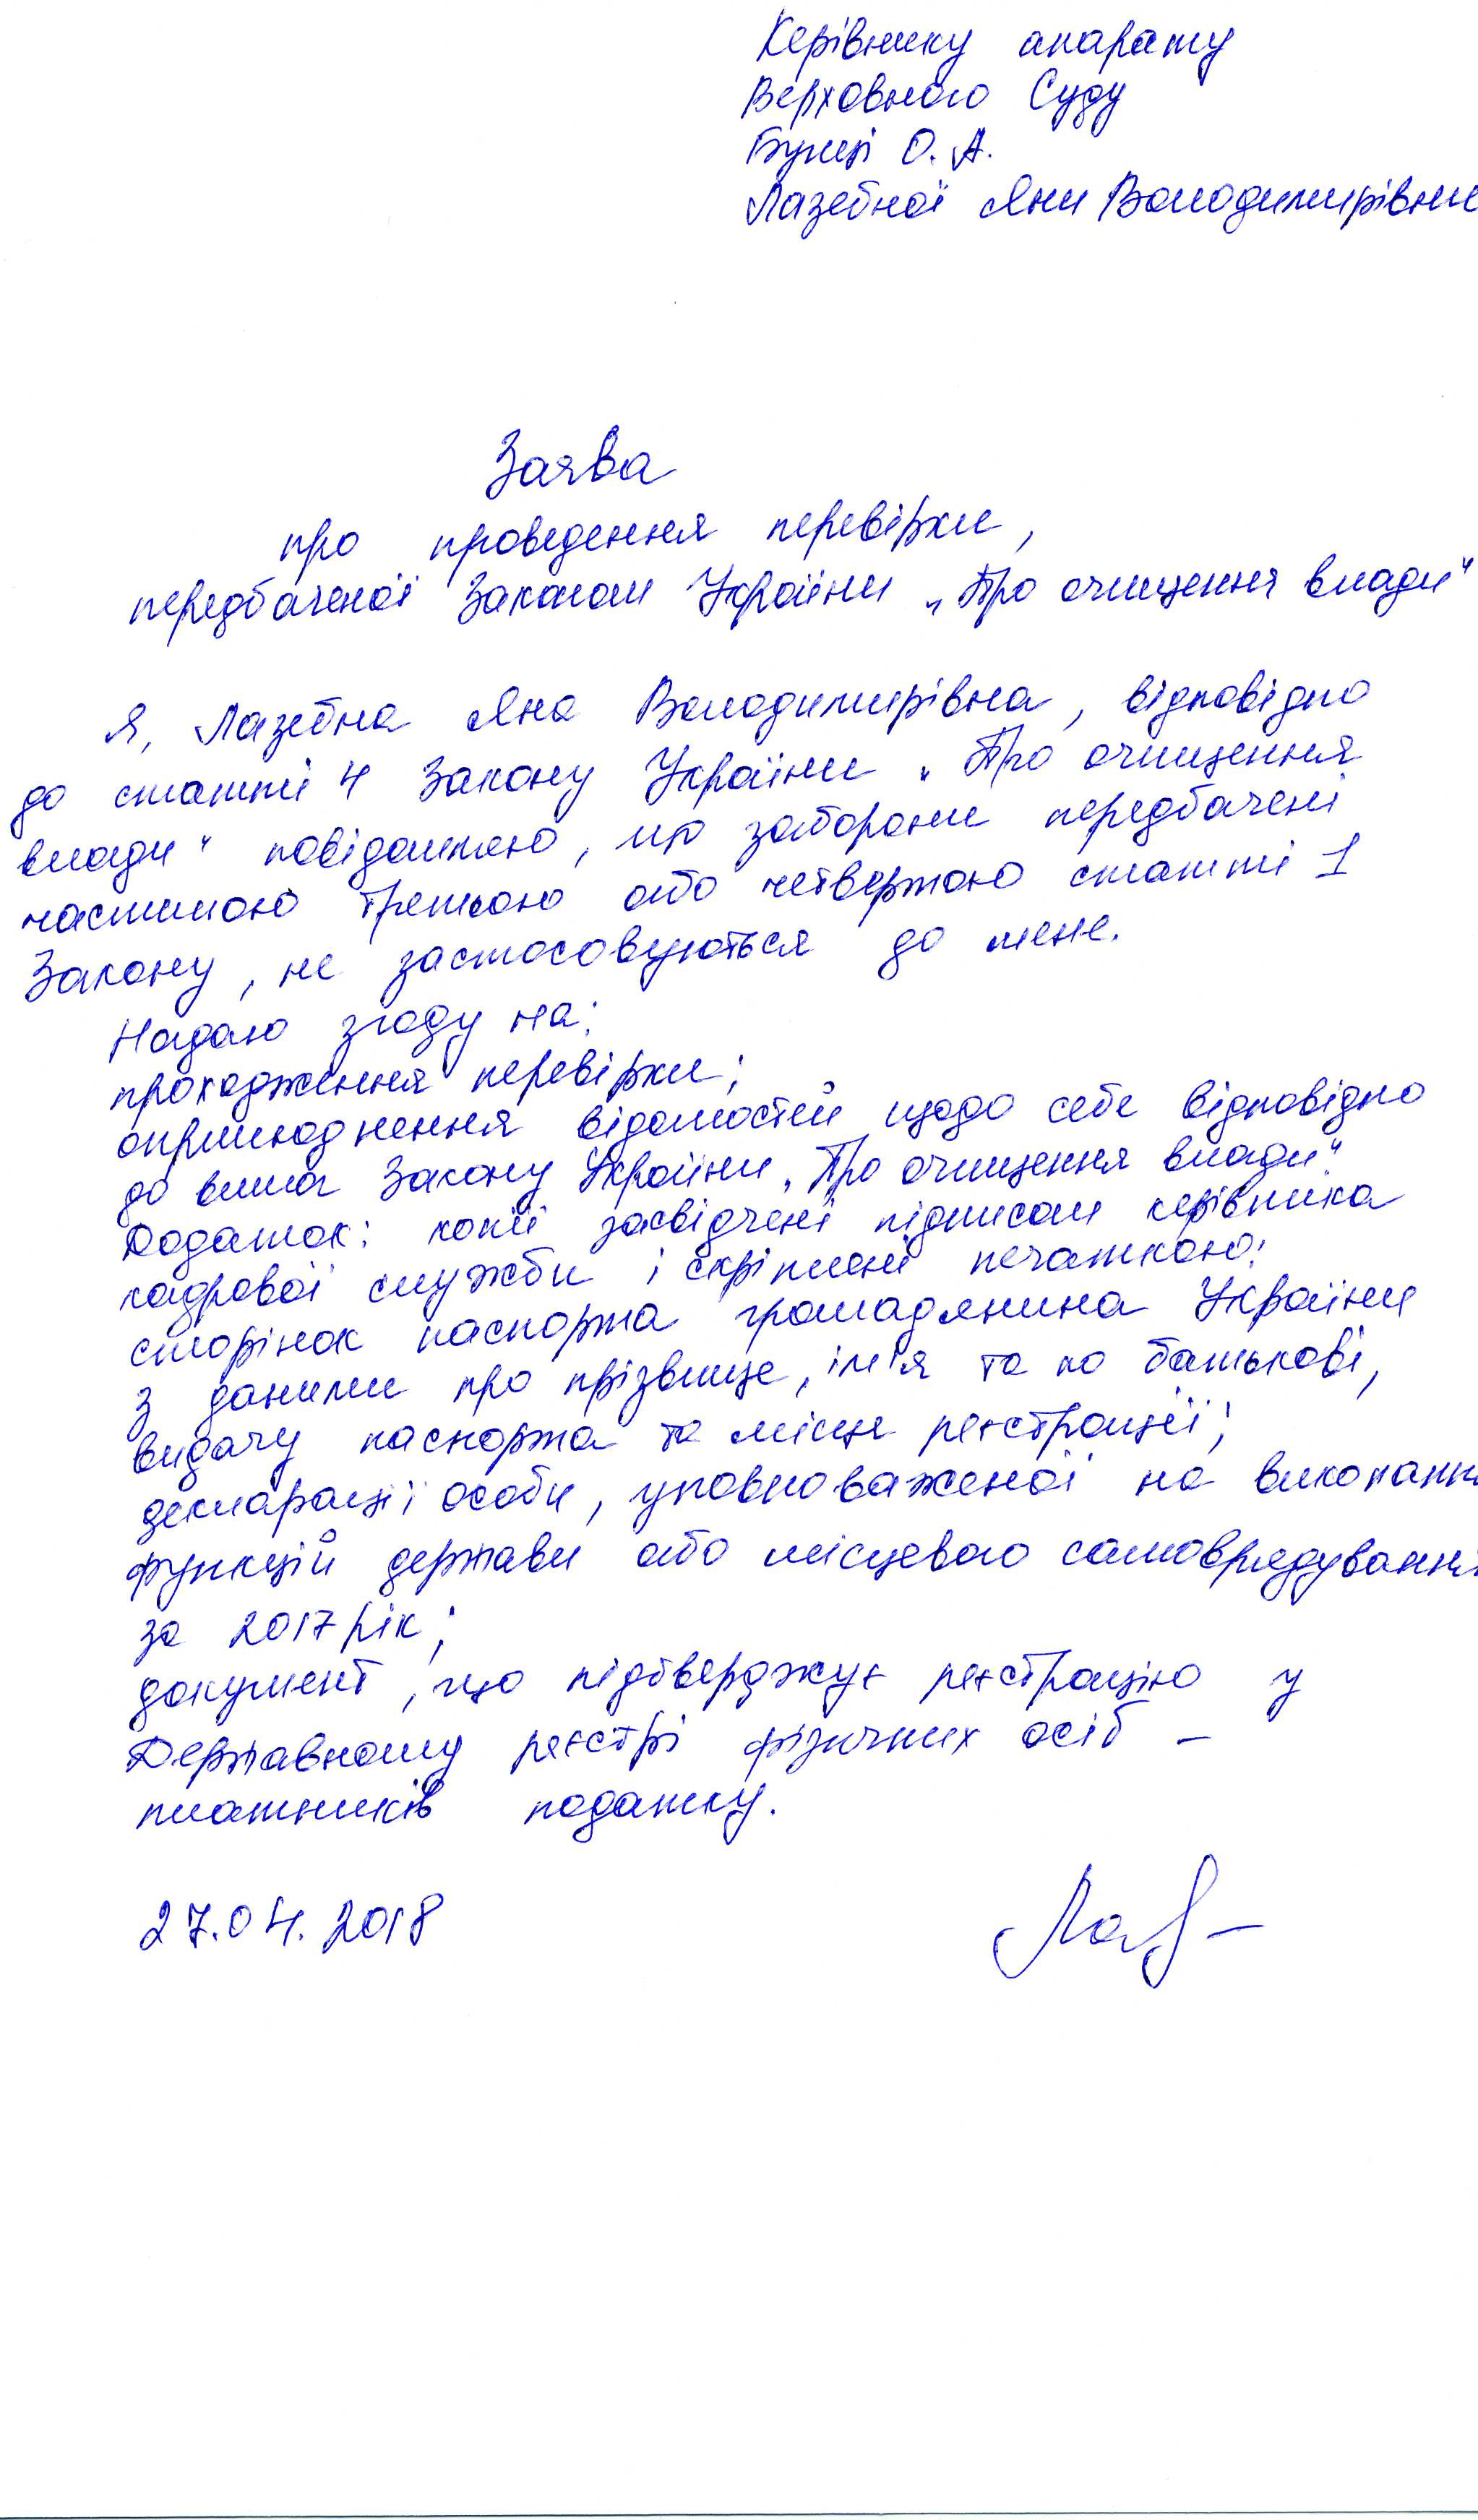 Керівнику апарату
Верховного Суду
Булці О. А.
Лазебної Яни Володимирівни
Заява
про проведення перевірки,
передбаченої Законом України „Про очищення влади“
Я, Лазебна Яна Володимирівна, відповідно
до статті 4 Закону України „Про очищення
влади“ повідомляю, що заборони передбачені
частиною третьою або четвертою статті 1
Закону, не застосовуються до мене.
Надаю згоду на:
проходження перевірки;
оприлюднення відомостей щодо себе відповідно
до вимог Закону України „Про очищення влади“.
Додаток: копії засвідчені підписом керівника
кадрової служби і скріплені печаткою:
сторінок паспорта громадянина України
з даними про прізвище, ім'я та по батькові,
видачу паспорта та місце реєстрації;
декларації особи, уповноваженої на виконання
функцій держави або місцевого самоврядування
за 2017 рік;
документ, що підтверджує реєстрацію у
Державному реєстрі фізичних осіб –
платників податку.
27.04.2018